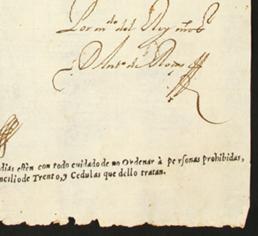 Por m.do del Rey nro s.r
D Ant.o de Roxas
dias estèn con todo cuidado de no Ordenar à personas prohibidas,
ncilio de Trento, y Cedulas que dello tratan.